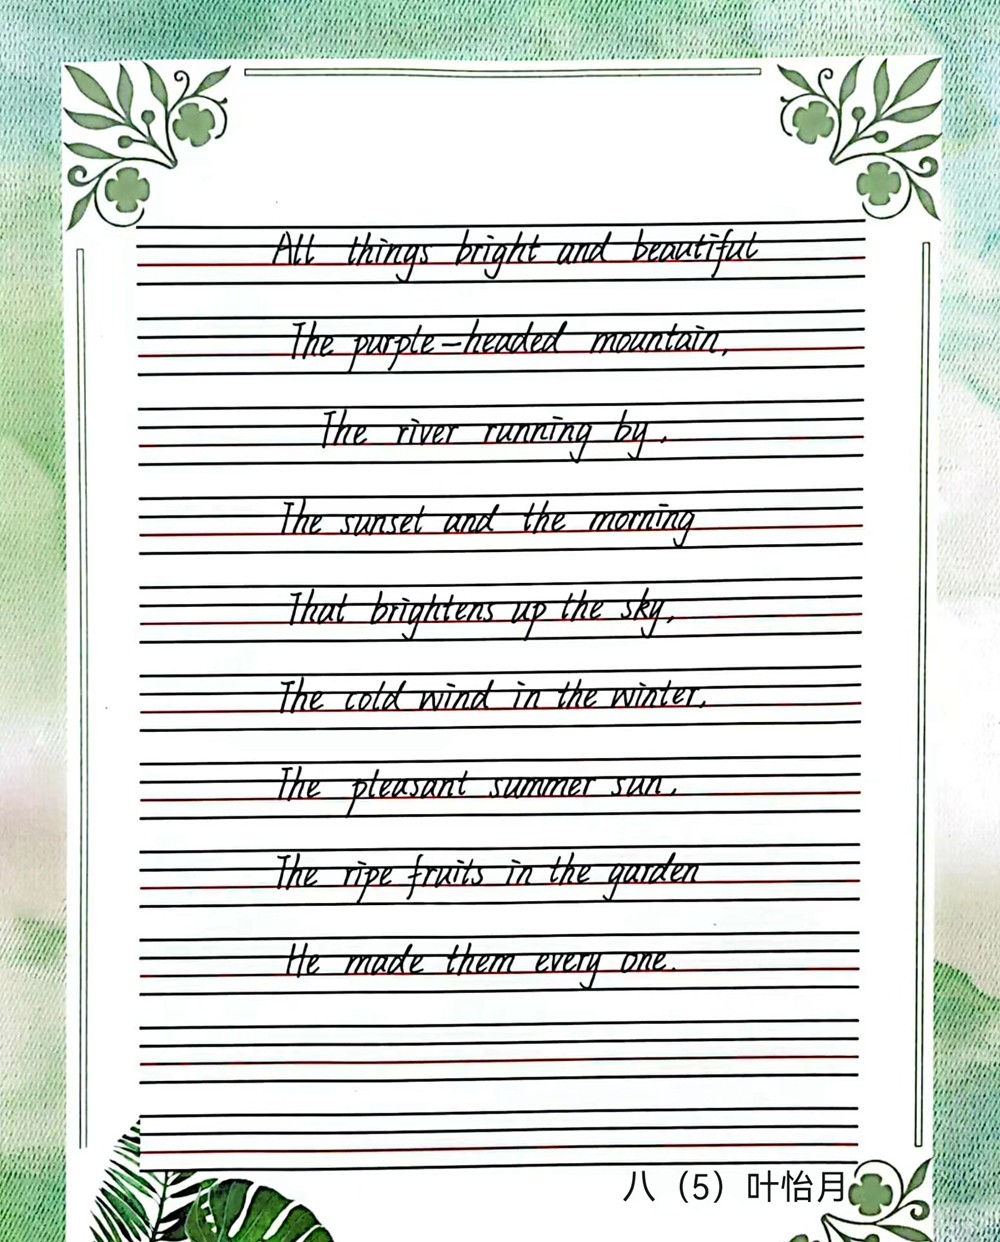 All things bright and beautiful
The purple-headed mountain,
The river running by,
The sunset and the morning
That brightens up the sky,
The cold wind in the winter,
The pleasant summer sun,
The ripe fruits in the garden
He made them every one.
八（5）叶怡月